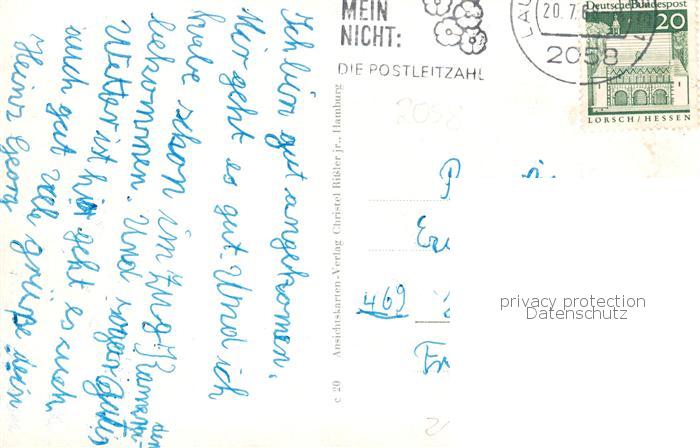 Ich bin gut angekomen.
Mir geht es gut. Und ich
habe schon im Zug Kamera-
den
bekommen. Und sogar gutes
Wetter ist hir geht es euch
auch gut viele grüße dein
Heinz Georg
MEIN
NICHT:
DIE POSTLEITZAHL
20.7.6
2058
Deutsche Bundespost
20
LORSCH/HESSEN
2058
c 20 Ansichtskarten-Verlag Christel Rißler jr., Hamburg
469
privacy protection
Datenschutz